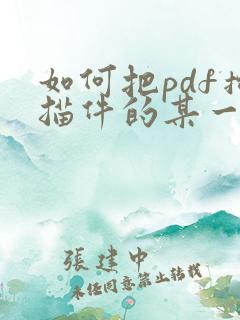 如何把pdf
描件的某一
張建中
未经同意禁止转载